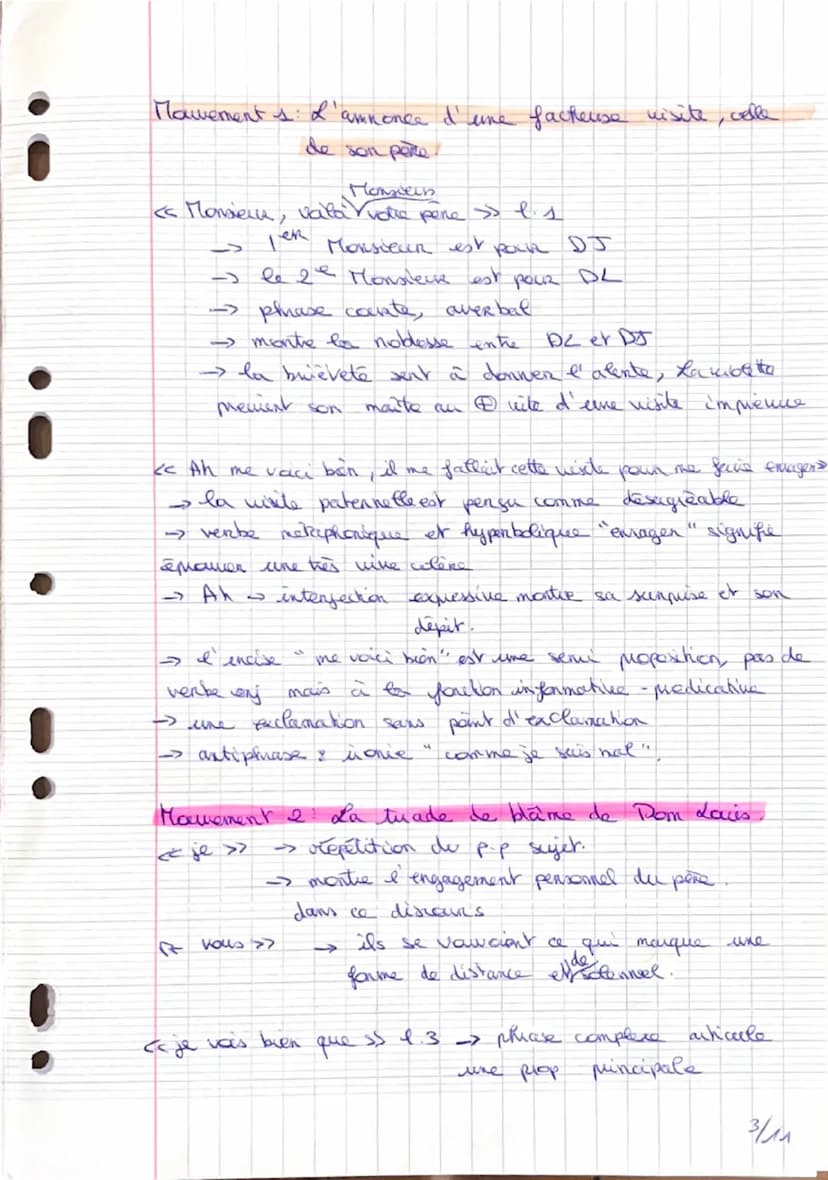 Mouvement 1 : L'annonce d'une facheuse visite, celle
de son père.
Monsieur
<< Monsieur, voilà votre père >> l.1
→ 1er Monsieur est pour DJ
→ le 2e Monsieur est pour DL
→ phrase courte, averbal
→ montre la noblesse entre DL et DJ
→ la brièveté sert à donner l'alerte,
prévient son maître au ⊕ vite d'une visite imprévue
<< Ah me voici bien, il me fallait cette visite pour me faire enrager >>
→ la visite paternelle est perçu comme désagréable
→ verbe métaphorique et hyperbolique "enrager" signifie
éprouver une très vive colère
→ Ah → interjection expressive montre sa surprise et son
dépit.
→ l'incise "me voici bien" est une semi proposition, pas de
verbe conj mais à la fonction informative - prédicative
→ une exclamation sans point d'exclamation
→ antiphrase : ironie "comme je suis mal".
Mouvement 2 : La tirade de blâme de Dom Louis.
<< je >> → répétition du p.p sujet.
→ montre l'engagement personnel du père.
dans ce discours
<< vous >> → ils se vouvoient ce qui marque une
forme de distance et de solennel.
<< je vois bien que >> l.3 → phrase complexe articule
une prop principale
3/11